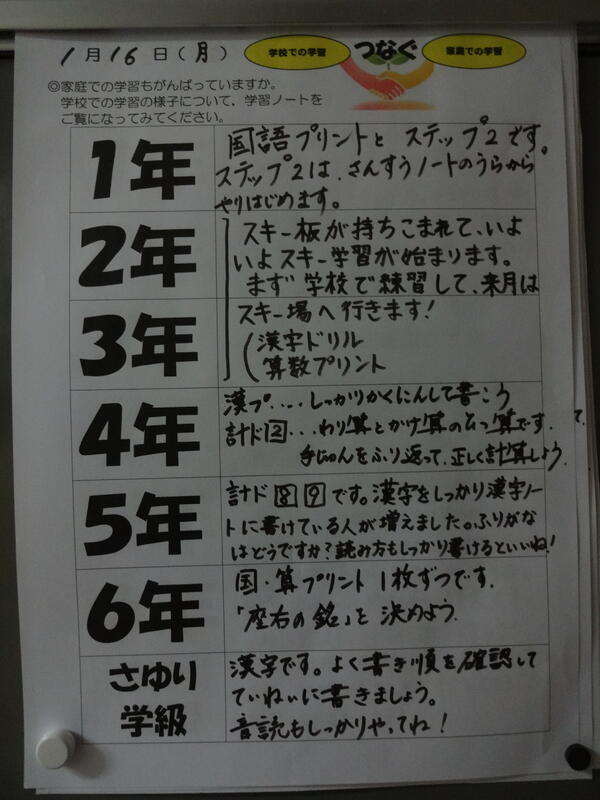 1月16日(月)
学校での学習 つなぐ 家庭での学習
◎家庭での学習もがんばっていますか。
学校での学習の様子について、学習ノートを
ご覧になってみてください。
1年
国語プリントと ステップ2です。
ステップ2は、さんすうノートのうらから
やりはじめます。
2年
3年
スキー板が持ちこまれて、いよ
いよスキー学習が始まります。
まず学校で練習して、来月は
スキー場へ行きます!
漢字ドリル
算数プリント
4年
漢プ....しっかりかくにんして書こう
計ド2...わり算とかけ算のひっ算です.
手じゅんをふり返って、正しく計算しよう.
て.
5年
計ド89です。漢字をしっかり漢字ノー
トに書けている人が増えました。ふりがな
はどうですか?読み方もしっかり書けるといいね!
6年
国・算プリント1枚ずつです.
「座右の銘」を決めよう.
さゆり
学級
漢字です。よく書き順を確認して
ていねいに書きましょう。
音読もしっかりやってね!